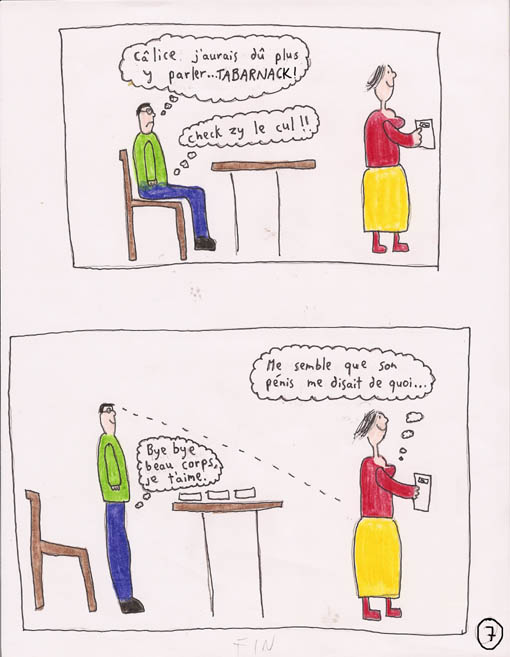 Câlice j'aurais dû plus
y parler...TABARNACK!
check zy le cul!!
Me semble que son
pénis me disait de quoi...
Bye bye
beau corps,
je t'aime.
7
FIN